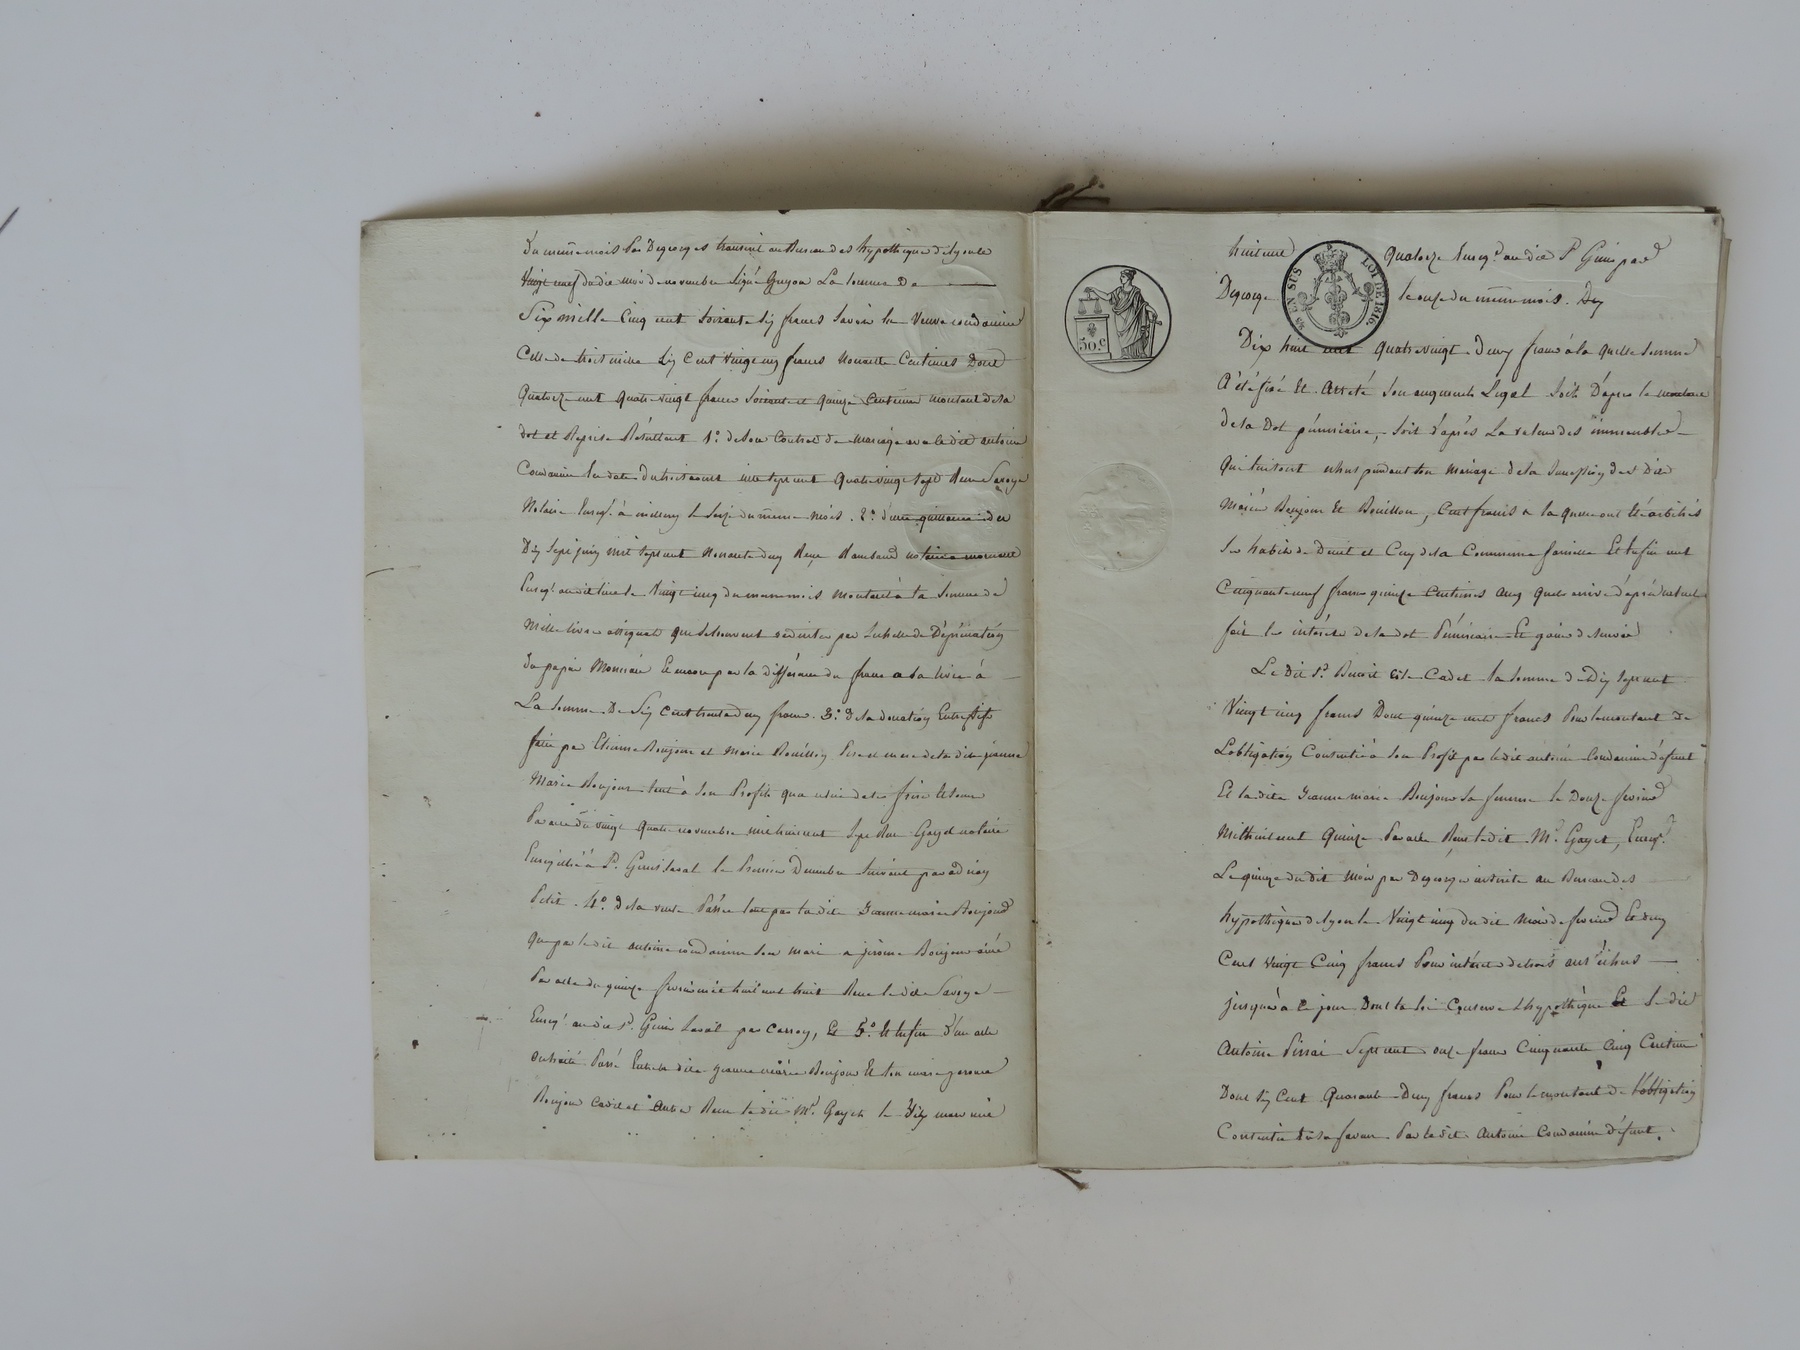 Du même mois Par Degeorges transcrit au Bureau des hypothèque de lyon le
Vingt neuf du dit mois de novembre signé Guyon La somme De
Six mille Cinq cent soixante six francs savoir la Veuve condamine
Celle de trois mille Six Cent vingt cinq francs nonante Centimes Dont
Quatorze cent quatre vingt francs soixante et quinze centimes montant de sa
dot et Reprise Résultant 1º. de son Contrat de Mariage avec le dit antoine
Condamine en date du trois aout mil sept cent Quatre vingt sept Reçu Savoye
Notaire Enreg. à millery le seize du même mois. 2º. d'une quittance du
Dix sept juin mil sept cent nonante deux Reçu Rambaud notaire
Enreg. au dit lieu le Vingt cinq du même mois montant à la somme de
Mille livres assignats que se trouvent réduites par l'echelle de Dépréciation
du papier Monnaie Et encore par la différence du franc a la livre à
La somme De Six Cent trente deux francs. 3º. de la donation Entre vifs
faite par Etienne Boujour et Marie Bouillon Pere et mere de la dite jeanne
Marie Boujour tant à son Profit qu'a celui de ses frère et soeur
Par acte du vingt quatre novembre mil huit cent sept Reçu Gayet notaire
Enregistré à St. Genis Laval le Premier Decembre suivant par
Petit. 4º. de la vente Passée tant par la dite Jeanne marie Boujour
Que par le dit antoine condamine son mari a jérôme Boujour ainé
Par acte du quinze fevrier mil huit cent huit Reçu le dit Savoye
Enreg. au dit St. Genis Laval par Carrey, Et 5º. Et Enfin d'un acte
du traité Passé Entre la dite jeanne marie Boujour Et son mari gerome
Boujour Cadet et autre Reçu le dit Me. Gayet le Dix mars mil
huit cent Quatorze Enreg. au dit St Genis par
Degeorge le onze du même mois. Dix
Dix huit cent Quatre vingt Deux francs à la quelle somme
A été fixé Et Arreté son augment Légal soit D'apres le montant
De la Dot pécuniaire, soit d'après La valeur des immeubles
Qui lui sont echus pendant son mariage de la succession des Dits
Mariés Boujour Et Bouillon, Cent francs a la quelle ont été arbitrés
Ses habits de Deuil et Ceux de sa Commune famille Et Enfin cent
Cinquante neuf francs quinze Centimes aux quels
soit les intérêts de sa dot Pécuniaire Et gain de survie
Le Dit Sr. Benoit Cadet la somme de Dix sept cent
Vingt cinq francs Dont quinze cents francs Pour le montant de
L'obligation Consentie à son Profit par le dit antoine Condamine défunt
Et la dite Jeanne marie Boujour sa femme le Douze fevrier
Mil huit cent Quinze Par acte Reçu le dit Me. Gayet, Enreg.
Le quinze du dit Mois par Degeorge inscrite au Bureau des
hypothèque de lyon le Vingt cinq du dit Mois de fevrier Et deux
Cent vingt Cinq francs Pour intérêts de trois ans échus
jusqu'à ce jour Dont la loi Conserve l'hypothèque Et Le dit
Antoine Pirrai Sept cent onze francs Cinquante Cinq Centimes
Dont six Cent Quarante Deux francs Pour le montant de l'obligation
Consentie En sa faveur Par le dit Antoine Condamine défunt.
50.c
EN SUS
LOI DE 1816.